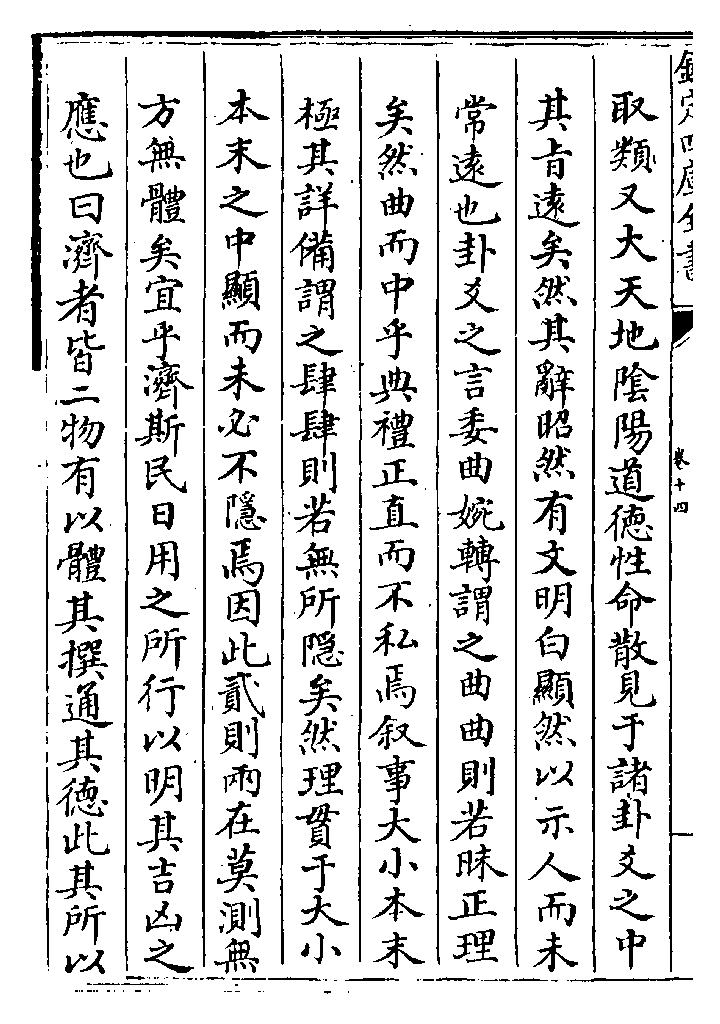 欽定四庫全書
卷十四
取類又大天地陰陽道德性命散見于諸卦爻之中
其旨遠矣然其辭昭然有文明白顯然以示人而未
常遠也卦爻之言委曲婉轉謂之曲曲則若昧正理
矣然曲而中乎典禮正直而不私焉叙事大小本末
極其詳備謂之肆肆則若無所隠矣然理貫于大小
本末之中顯而未必不隱焉因此貳則兩在莫測無
方無體矣宜乎濟斯民日用之所行以明其吉凶之
應也曰濟者皆二物有以體其撰通其德此其所以